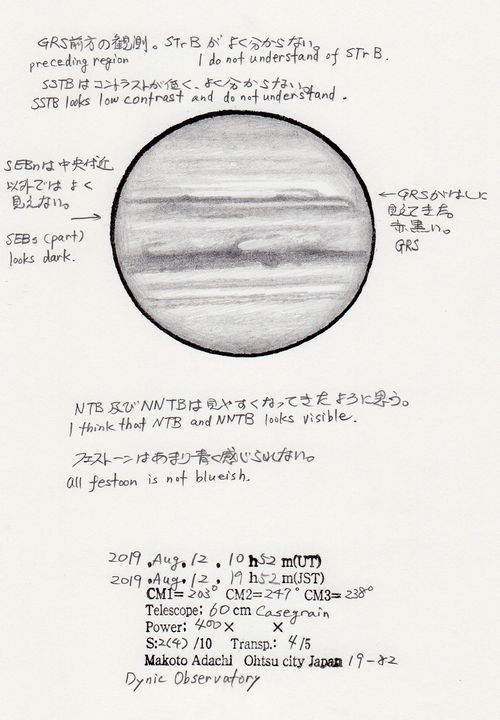 GRS前方の観測。STrBがよく分からない。
preceding region I do not understand of STrB.
SSTBはコントラストが低く、よく分からない。
SSTB looks low contrast and do not understand.
SEBnは中央付近
以外ではよく
見えない。
→
SEBs (part)
looks dark.
←GRSがはしに
見えてきた。
赤黒い。
GRS
NTB及びNNTBは見やすくなってきたように思う。
I think that NTB and NNTB looks visible.
フェストーンはあまり青く感じられない。
all festoon is not blueish.
2019.Aug.12. 10 h52 m(UT)
2019.Aug.12. 19 h52 m(JST)
CM1=203° CM2=247° CM3=238°
Telescope: 60 cm Casegrain
Power: 400× ×
S:2(4)/10 Transp.: 4/5
Makoto Adachi Ohtsu city Japan 19-82
Dynic Observatory